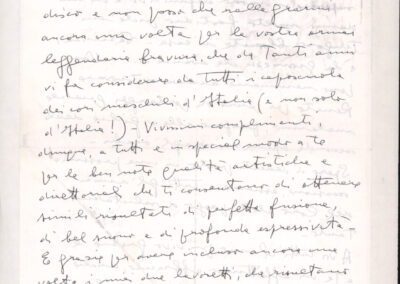 disco e non posso che rallegrarmi
ancora una volta per la vostra ormai
leggendaria bravura, che da tanti anni
vi fa considerare da tutti i caposcuola
dei cori maschili d'Italia (e non solo
d'Italia!) - Vivissimi complimenti,
dunque, a tutti e in special modo a te
per le ben note qualità artistiche e
direttoriali che ti consentono di ottenere
simili risultati di perfetta fusione,
di bel suono e di profonda espressività -
E grazie per avere incluso ancora una
volta i miei due lavoretti, che risultano